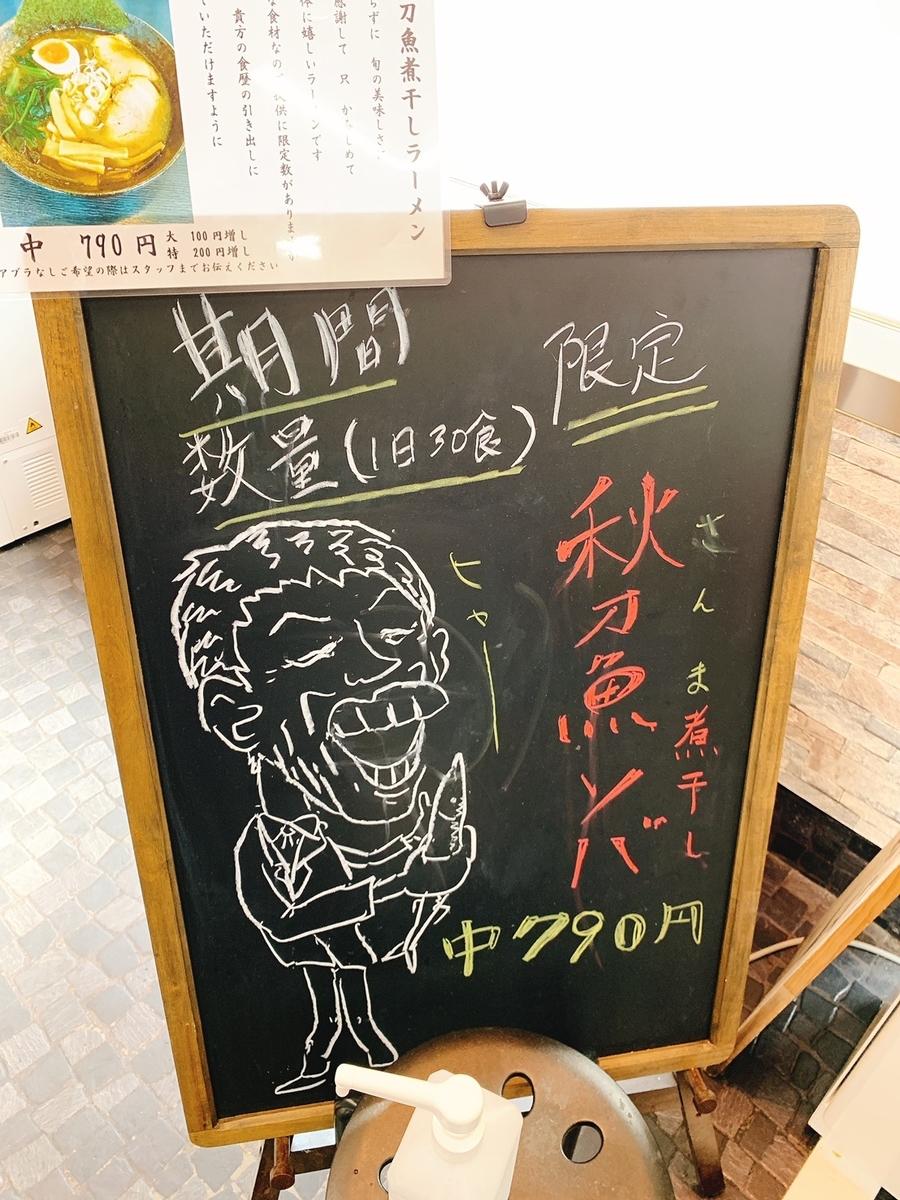 刀魚煮干しラーメン
らずに 旬の美味しさ
感謝して 只 かみしめて
体に嬉しいラーメンです
な食材なの 提供に限定数がありま
貴方の食歴の引き出しに
ていただけますように
中 790円 大 100円増し
特 200円増し
アブラなしご希望の際はスタッフまでお伝えください
期間 限定
数量(1日30食)
さんま煮干し
秋刀魚ソバ
ヒャー
中790円